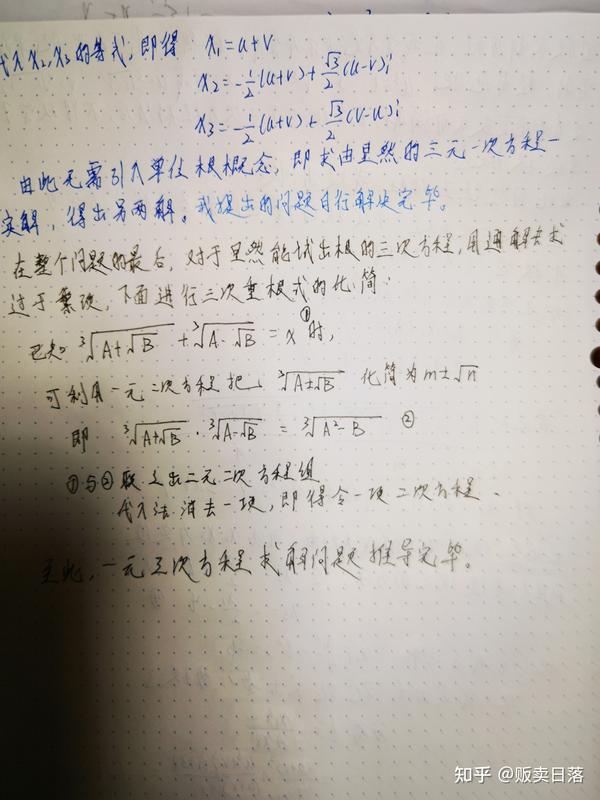 代入x₂,x₃的等式,即得 x₁=u+v
x₂=-½(u+v)+√3/2(u-v)i
x₃=-½(u+v)+√3/2(v-u)i
由此无需引入单位根概念,即求由显然的三元一次方程一
实解,得出另两解。我提出的问题自行解决完毕。
在整个问题的最后,对于显然能试出根的三次方程,用通解去求
过于繁琐,下面进行三次重根式的化简.
已知 ∛(A+√B) + ∛(A-√B) = x ① 时,
可利用一元二次方程把 ∛(A±√B) 化简为m±√n
即 ∛(A+√B) · ∛(A-√B) = ∛(A²-B) ②
①与②联立出二元二次方程组
代入法消去一项,即得令一项二次方程.
至此,一元三次方程求解问题推导完毕。
知乎 @贩卖日落